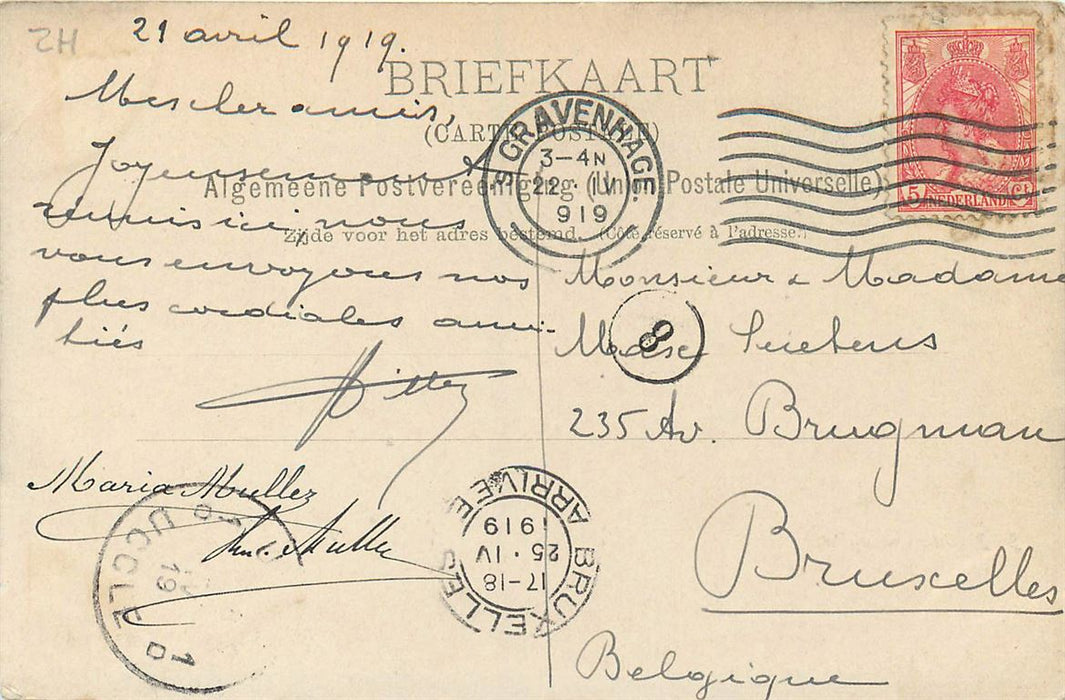 ZH
21 avril 1919.
BRIEFKAART
(CARTE POSTALE)
Algemeene Postvereeniging (Union Postale Universelle)
Zijde voor het adres bestemd. (Côté réservé à l'adresse.)
Mes chers amis,
Joyeusement
réunis ici, nous
vous envoyons nos
plus cordiales ami-
tiés
Maria Muller
Muller
'S GRAVENHAGE.
3-4N
22 · IV
919
5 NEDERLAND Ct
8
Monsieur & Madame
Suetens
235 Av. Brugman
Bruxelles
Belgique
BRUXELLES ARRIVÉE
17-18
25 · IV
1919
UCCLE
IV
19